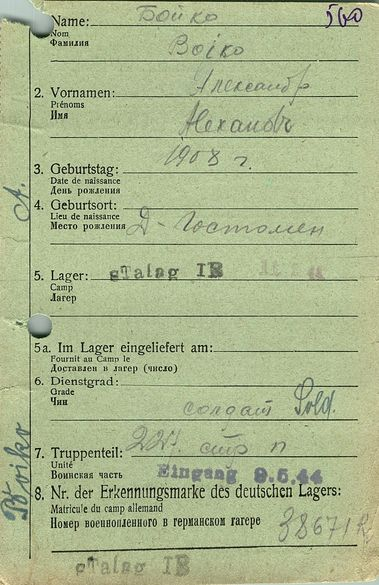 560
Name: Бойко
Nom
Фамилия
Boiko
2. Vornamen: Александр
Prénoms
Имя
3. Geburtstag: 1908 г.
Date de naissance
День рождения
4. Geburtsort:
Lieu de naissance
Место рождения Д-Гостомен
5. Lager: sTalag IB
Camp
Лагер
5a. Im Lager eingeliefert am:
Fournit au Camp le
Доставлен в лагер (число)
6. Dienstgrad:
Grade
Чин
солдат Sold.
7. Truppenteil: стр п
Unité
Воинская часть Eingang 9.5.44
8. Nr. der Erkennungsmarke des deutschen Lagers:
Matricule du camp allemand
Номер военнопленного в германском лагере
38671
sTalag IB
Boiko A.